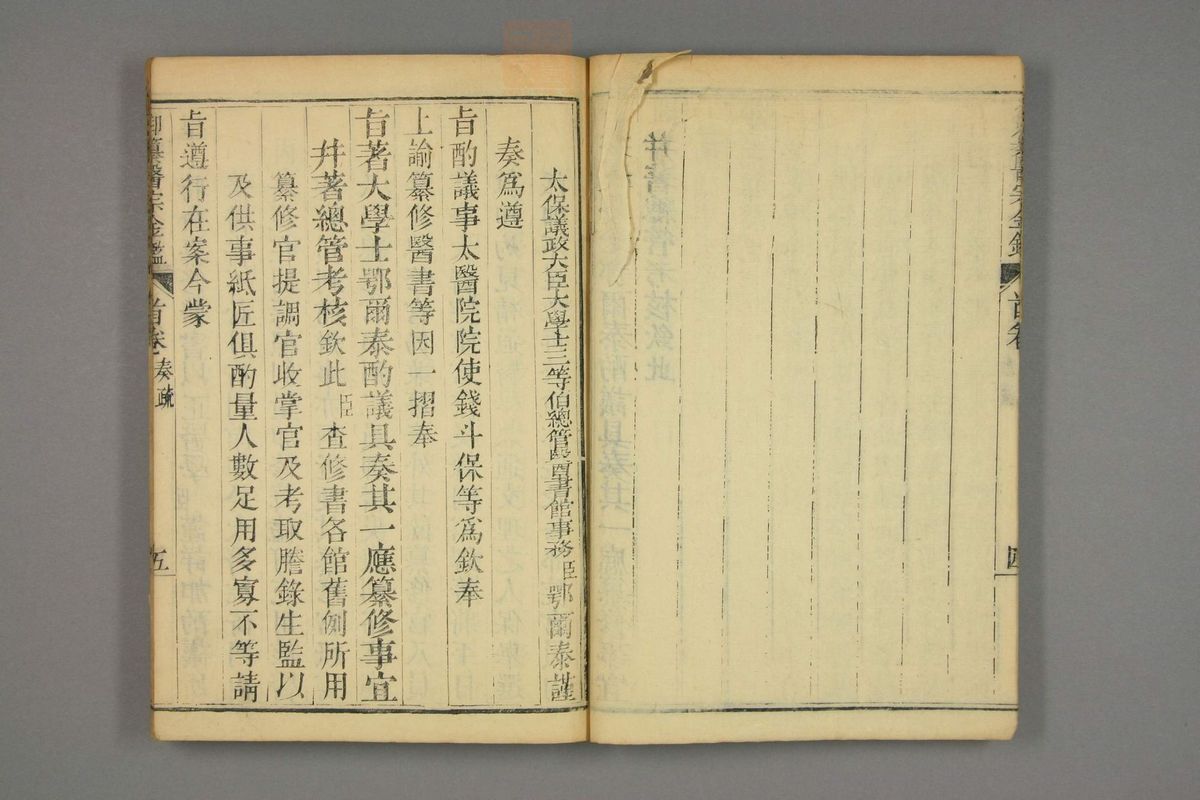 太保議政大臣大學士三等伯總管醫書館事務臣鄂爾泰謹
奏爲遵
旨酌議事太醫院院使錢斗保等爲欽奉
上諭纂修醫書等因一摺奉
旨著大學士鄂爾泰酌議具奏其一應纂修事宜
幷著總管考核欽此臣查修書各館舊例所用
纂修官提調官收掌官及考取謄錄生監以
及供事紙匠俱酌量人數足用多寡不等請
旨遵行在案今蒙
御纂醫宗金鑑 首卷 奏疏 五